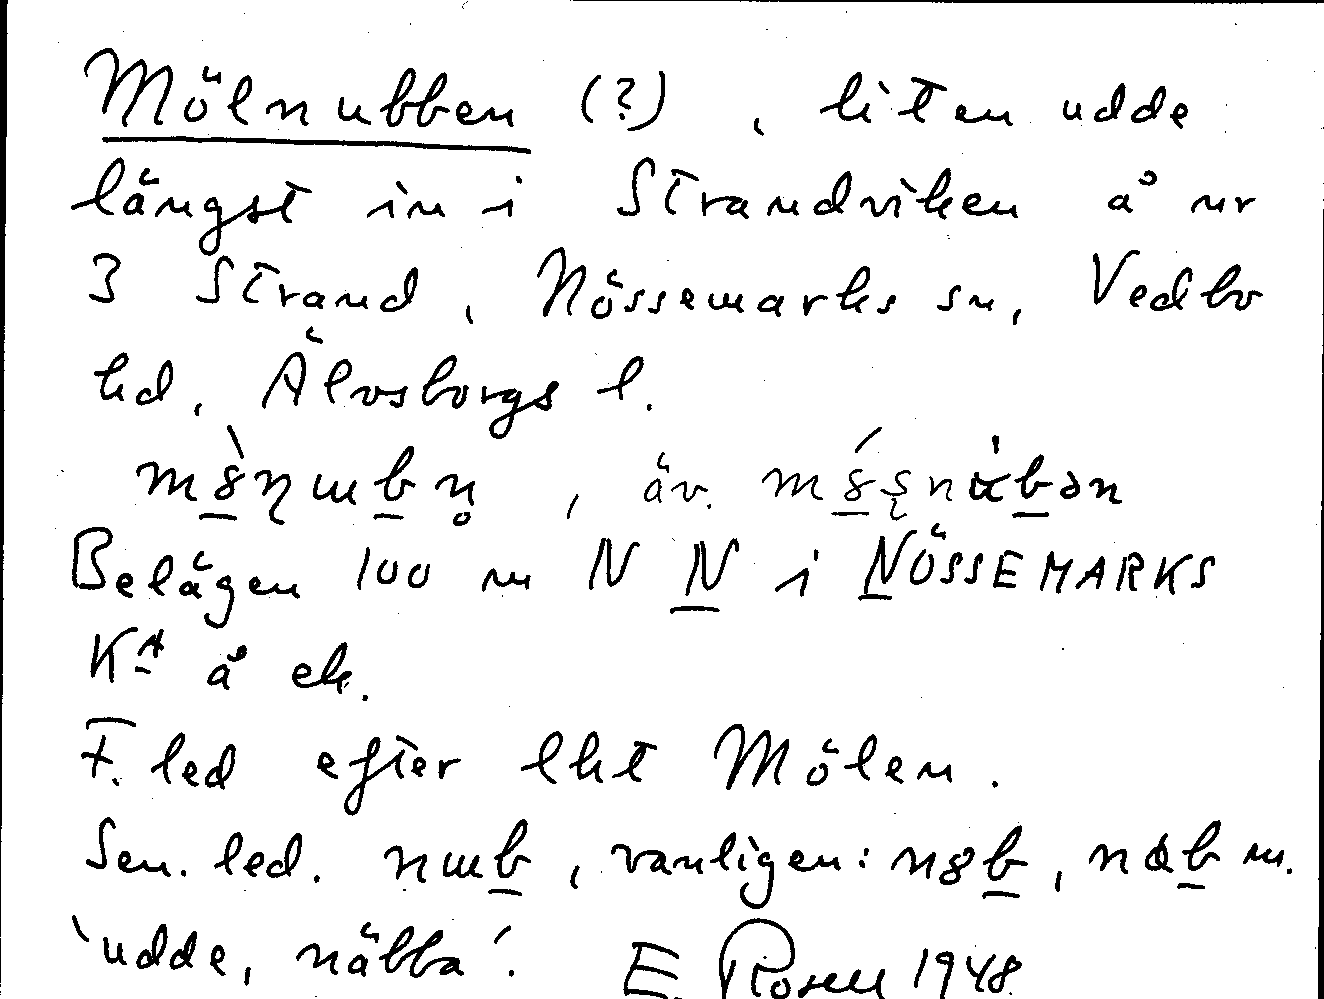 Mölnubben (?), liten udde
längst in i Strandviken å nr
3 Strand, Nössemarks sn, Vedbo
hd, Älvsborgs l.
, äv.
Belägen 100 m N N i NÖSSEMARKS
KA å ek.
F. led efter lht Mölen.
Sen. led. nɯb, vanligen: n8b, nab m.
'udde, näbba'. E. Rosell 1948